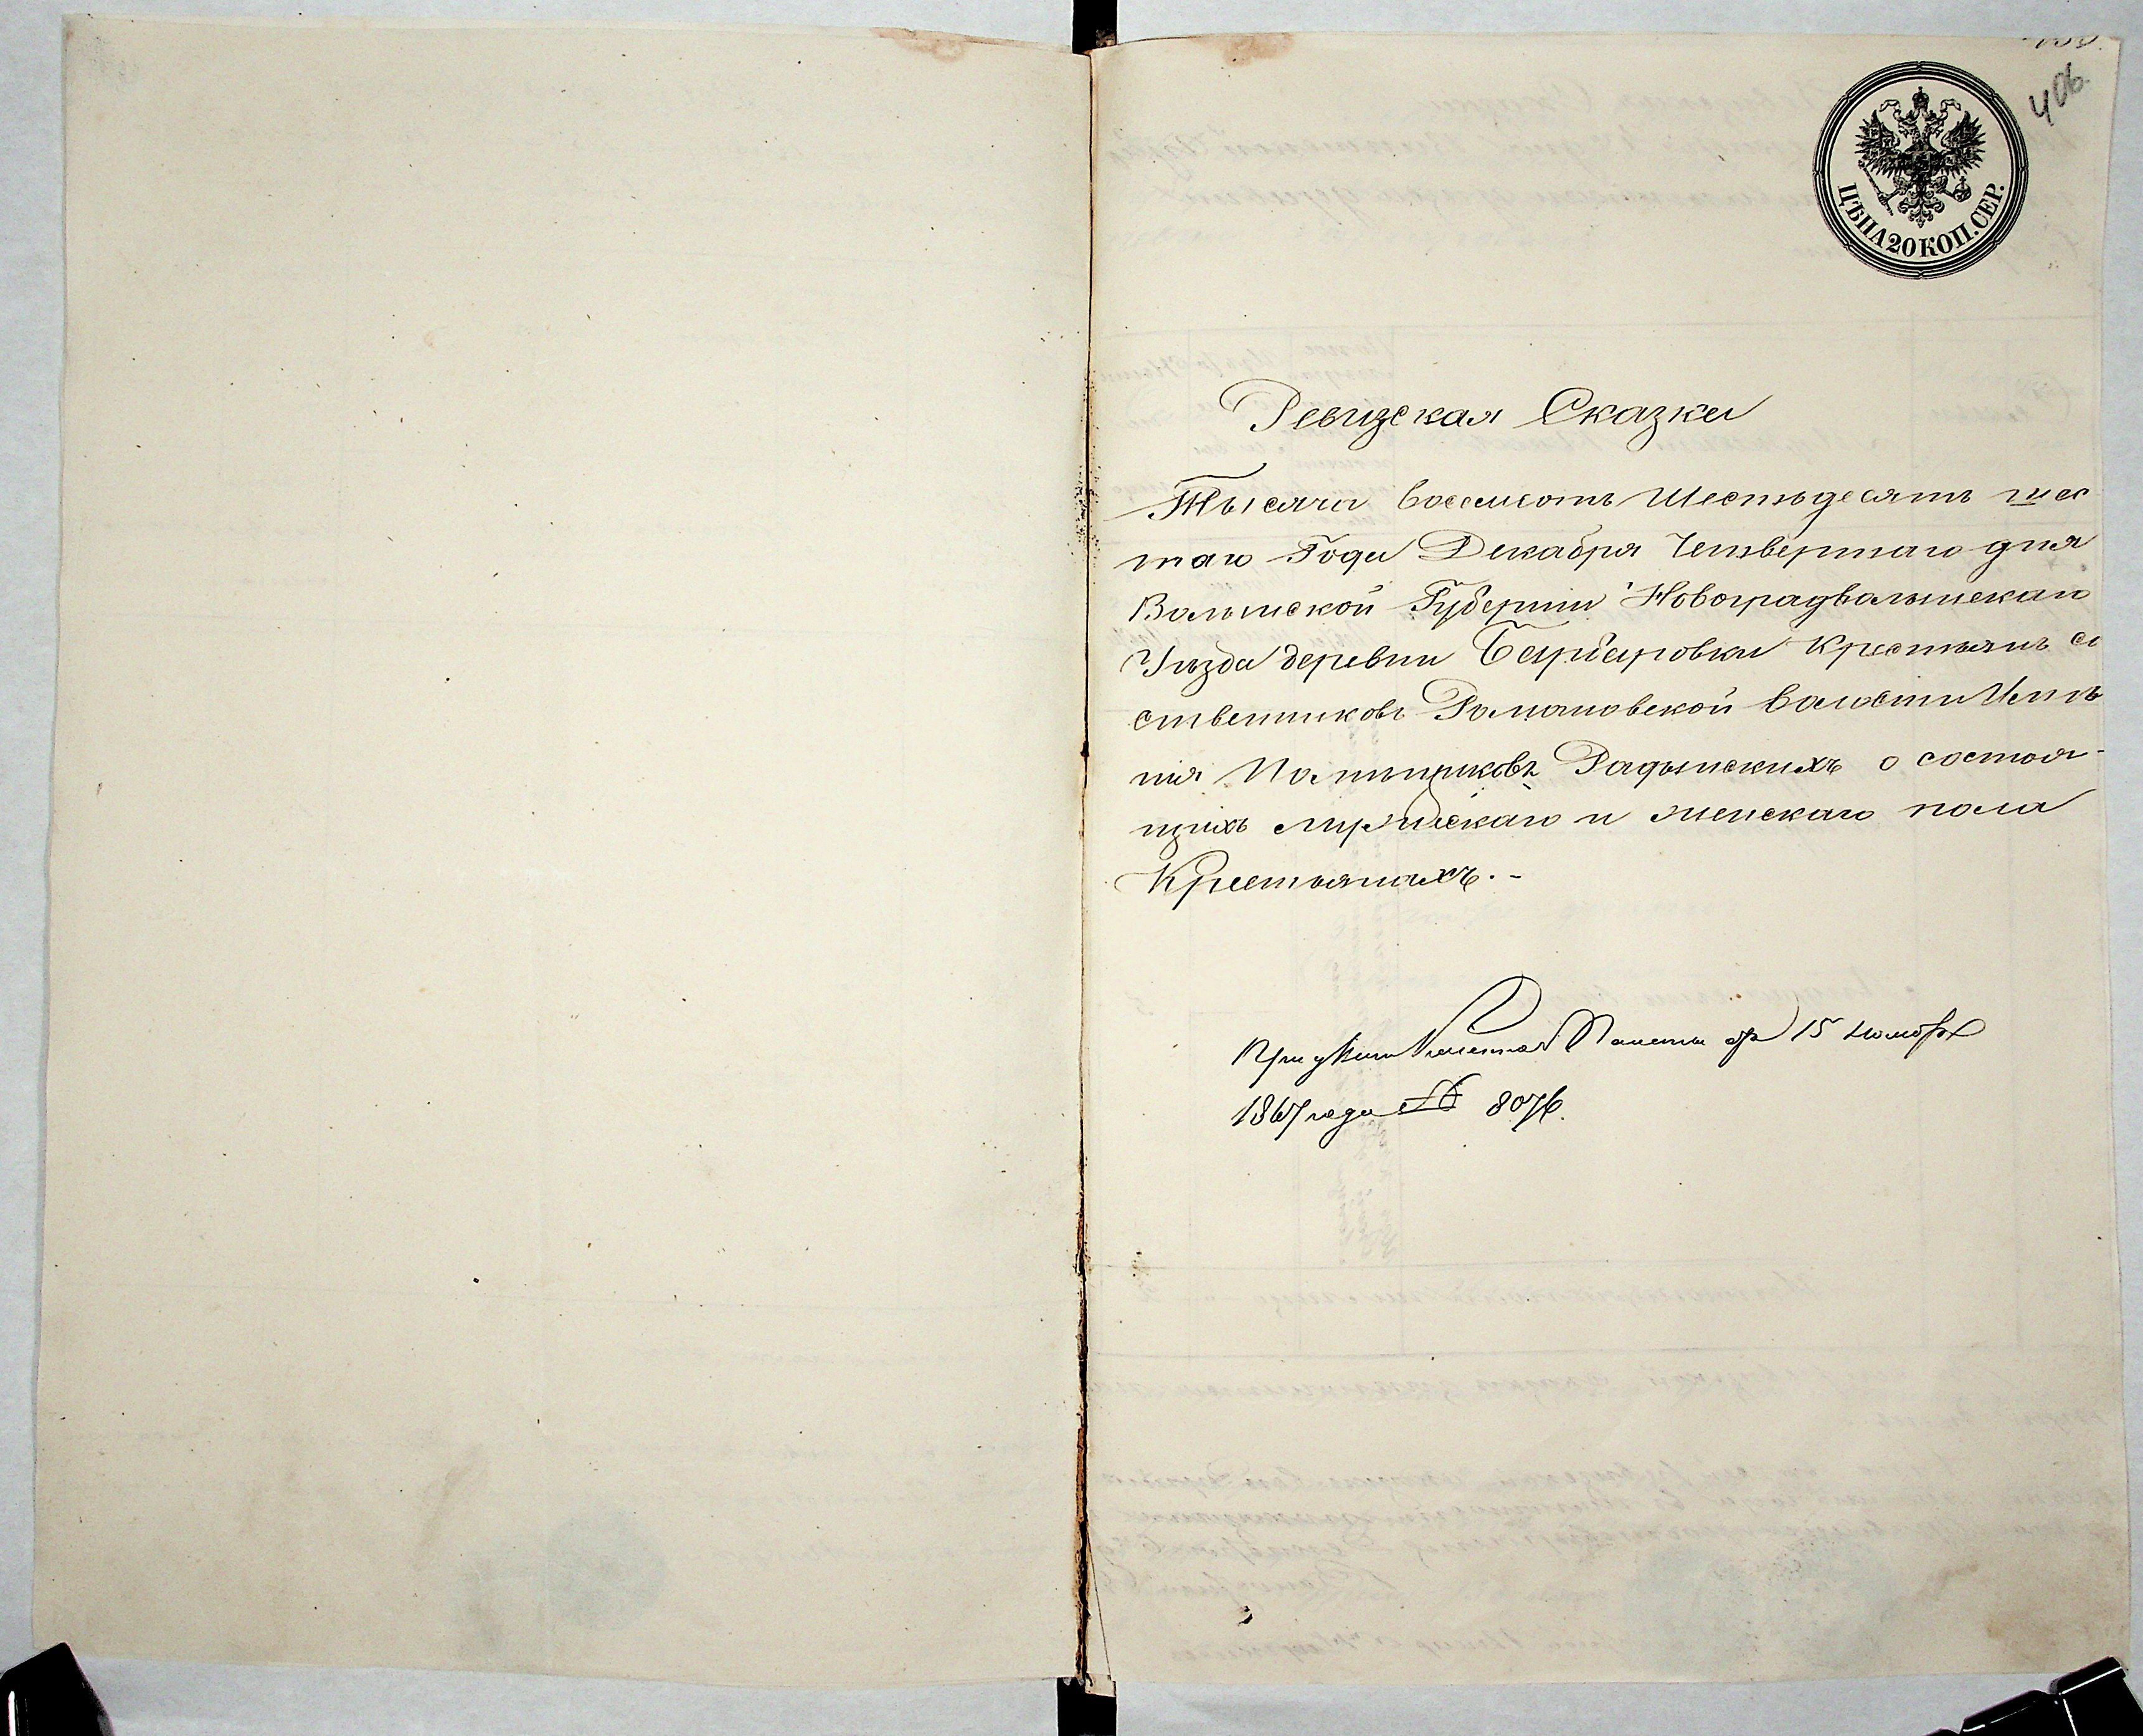 406.
ЦѢНА 20 КОП. СЕР.
Ревизская Сказка
Тысяча восемсотъ Шестьдесятъ шес
таго Года Декабря Четвертаго дня
Волынской Губерніи Новоградволынскаго
Уѣзда деревни Барбаровки Крестьянъ со
ственниковъ Романовской волости Имѣ
нія Радынскихъ о состоя-
щихъ мужескаго и женскаго пола
Крестьянахъ.-
При указѣ Казенной Палаты отъ 15 Ноября
1867 года № 8076.